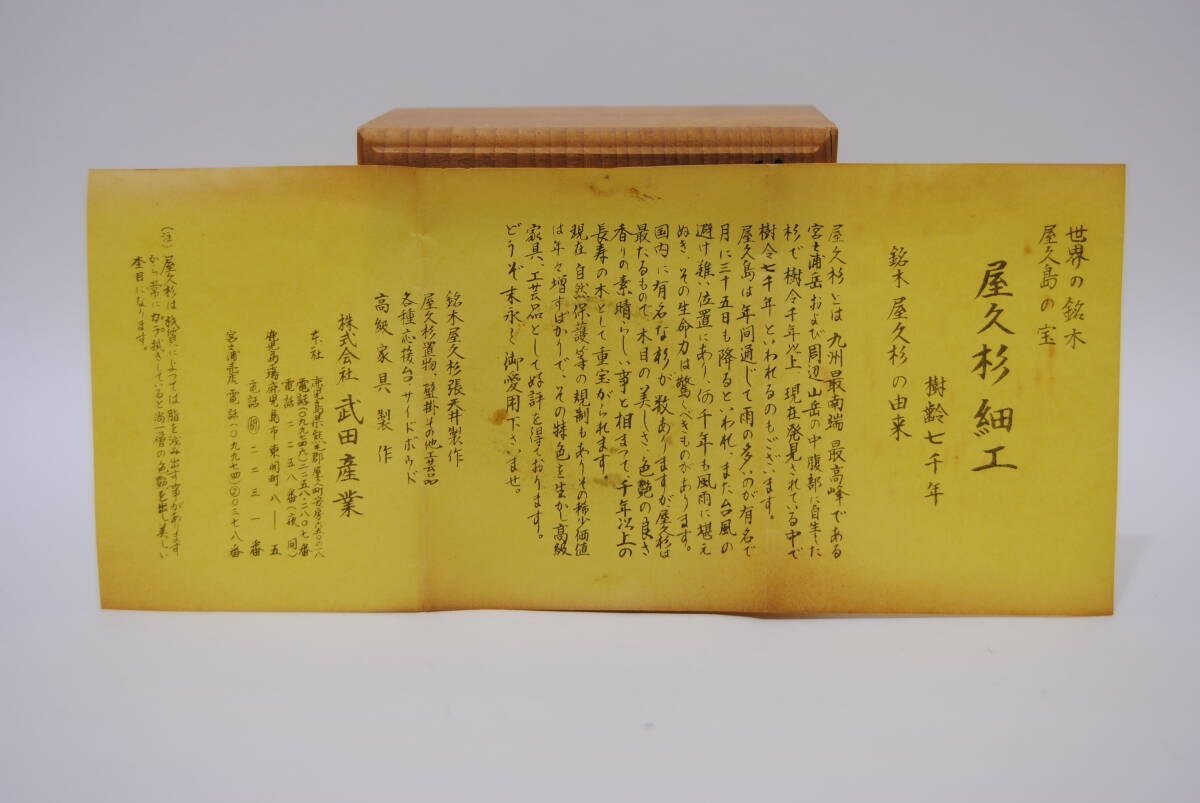 世界の銘木
屋久島の宝
屋久杉細工
樹齢七千年
銘木 屋久杉の由来
屋久杉とは 九州最南端 最高峰である
宮之浦岳および周辺山岳の中腹部に自生した
杉で樹令千年以上 現在発見されている中で
樹令七千年といわれるのもございます。
屋久島は年間通じて雨の多いのが有名で
月に三十五日も降るといわれ、また台風の
避け難い位置にあり、何千年も風雨に堪え
ぬき、その生命力は驚くべきものがあります。
国内に有名な杉が数ありますが、屋久杉は
最たるもので、木目の美しさ、色艶の良さ
香りの素晴らしい事と相まって、千年以上の
長寿の木として重宝がられます。
現在 自然保護等の規制もありその稀少価値
は年々増すばかりで、その特色を生かし高級
家具、工芸品として好評を得ております。
どうぞ末永く御愛用下さいませ。
銘木屋久杉張天井製作
屋久杉置物、壁掛その他工芸品
各種応接台、サイドボウド
高級家具製作
株式会社 武田産業
本社 鹿児島県熊毛郡屋久町安房
電話(〇九九七四六)二二五八・二八〇七番
電話 二二五八番(夜間)
鹿児島市東開町八―五
電話 二三一番
宮之浦売店 電話(〇九九七四)②〇三七八番
(注)屋久杉は銭質によつては脂を滲み出す事があります
から常にカラ拭きしていると尚一層の色艶を出し美しい
杢目になります。